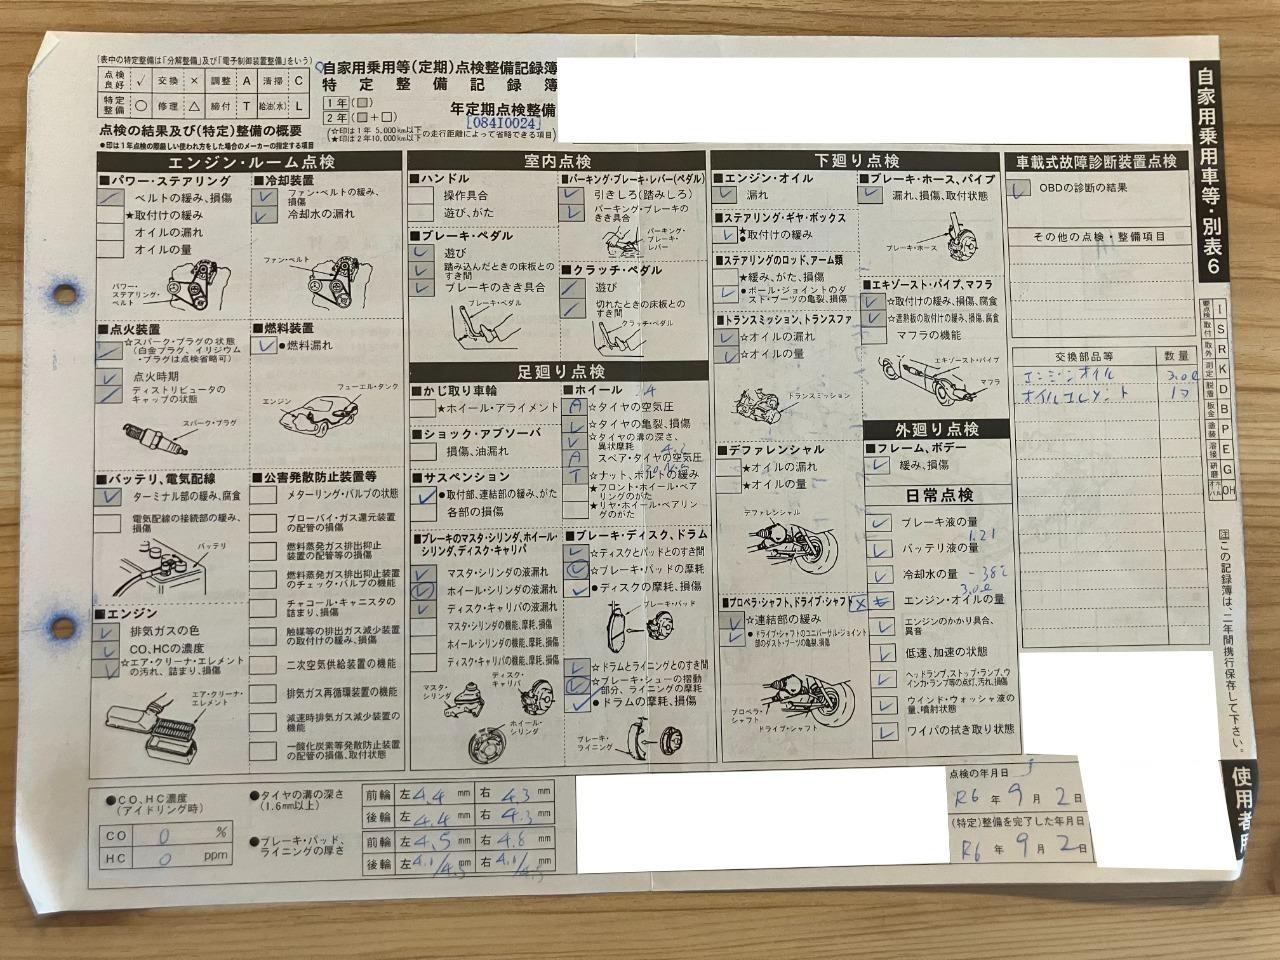 (表中の特定整備は「分解整備」及び「電子制御装置整備」をいう)
点検良好 ✓ 交換 × 調整 A 清掃 C
特定整備 ○ 修理 △ 締付 T 給油(水) L
点検の結果及び(特定)整備の概要
●印は1年点検の際厳しい使われ方をした場合のメーカーの指定する項目
自家用乗用等(定期)点検整備記録簿
特定整備記録簿
1年(□)
2年(□+□)
年定期点検整備
[08410024]
(☆印は1年 5,000km以下
★印は2年10,000km以下の走行距離によって省略できる項目)
自家用乗用車等・別表6
エンジン・ルーム点検
■パワー・ステアリング
ベルトの緩み、損傷
★取付けの緩み
オイルの漏れ
オイルの量
パワー・ステアリング・ベルト
■冷却装置
ファン・ベルトの緩み、損傷
冷却水の漏れ
ファン・ベルト
■点火装置
☆スパーク・プラグの状態
(白金プラグ、イリジウム・プラグは点検省略可)
点火時期
ディストリビュータのキャップの状態
スパーク・プラグ
■燃料装置
●燃料漏れ
フューエル・タンク
エンジン
■バッテリ、電気配線
ターミナル部の緩み、腐食
電気配線の接続部の緩み、損傷
バッテリ
■エンジン
排気ガスの色
CO、HCの濃度
☆エア・クリーナ・エレメントの汚れ、詰まり、損傷
エア・クリーナ・エレメント
■公害発散防止装置等
メターリング・バルブの状態
ブローバイ・ガス還元装置の配管の損傷
燃料蒸発ガス排出抑止装置の配管等の損傷
燃料蒸発ガス排出抑止装置のチェック・バルブの機能
チャコール・キャニスタの詰まり、損傷
触媒等の排出ガス減少装置の取付けの緩み、損傷
二次空気供給装置の機能
排気ガス再循環装置の機能
減速時排気ガス減少装置の機能
一酸化炭素等発散防止装置の配管の損傷、取付状態
室内点検
■ハンドル
操作具合
遊び、がた
■ブレーキ・ペダル
遊び
踏み込んだときの床板とのすき間
ブレーキのきき具合
ブレーキ・ペダル
■パーキング・ブレーキ・レバー(ペダル)
引きしろ(踏みしろ)
パーキング・ブレーキのきき具合
パーキング・ブレーキ・レバー
■クラッチ・ペダル
遊び
切れたときの床板とのすき間
クラッチ・ペダル
足廻り点検
■かじ取り車輪
★ホイール・アライメント
■ショック・アブソーバ
損傷、油漏れ
■サスペンション
●取付部、連結部の緩み、がた
各部の損傷
■ブレーキのマスタ・シリンダ、ホイール・シリンダ、ディスク・キャリパ
マスタ・シリンダの液漏れ
ホイール・シリンダの液漏れ
ディスク・キャリパの液漏れ
マスタ・シリンダの機能、摩耗、損傷
ホイール・シリンダの機能、摩耗、損傷
ディスク・キャリパの機能、摩耗、損傷
マスタ・シリンダ
ディスク・キャリパ
ホイール・シリンダ
■ホイール
A ☆タイヤの空気圧
☆タイヤの亀裂、損傷
☆タイヤの溝の深さ、異状摩耗
A スペア・タイヤの空気圧
T ☆ナット、ボルトの緩み
★フロント・ホイール・ベアリングのがた
★リヤ・ホイール・ベアリングのがた
■ブレーキ・ディスク、ドラム
☆ディスクとパッドとのすき間
☆ブレーキ・パッドの摩耗
●ディスクの摩耗、損傷
ブレーキ・パッド
☆ドラムとライニングとのすき間
☆ブレーキ・シューの摺動部分、ライニングの摩耗
●ドラムの摩耗、損傷
ブレーキ・ライニング
下廻り点検
■エンジン・オイル
漏れ
■ステアリング・ギヤ・ボックス
★取付けの緩み
■ステアリングのロッド、アーム類
★緩み、がた、損傷
●ボール・ジョイントのダスト・ブーツの亀裂、損傷
■トランスミッション、トランスファ
☆オイルの漏れ
☆オイルの量
トランスミッション
■デファレンシャル
★オイルの漏れ
★オイルの量
デファレンシャル
■プロペラ・シャフト、ドライブ・シャフト
☆連結部の緩み
●ドライブ・シャフトのユニバーサル・ジョイント部のダスト・ブーツの亀裂、損傷
プロペラ・シャフト
ドライブ・シャフト
■ブレーキ・ホース、パイプ
漏れ、損傷、取付状態
ブレーキ・ホース
■エキゾースト・パイプ、マフラ
☆取付けの緩み、損傷、腐食
☆遮熱板の取付けの緩み、損傷、腐食
マフラの機能
エキゾースト・パイプ
マフラ
外廻り点検
■フレーム、ボデー
緩み、損傷
日常点検
ブレーキ液の量
1.21
バッテリ液の量
冷却水の量 -38℃
3.0ℓ
エンジン・オイルの量
エンジンのかかり具合、異音
低速、加速の状態
ヘッドランプ、ストップ・ランプ、ウインカ・ランプ等の点灯、汚れ、損傷
ウインド・ウォッシャ液の量、噴射状態
ワイパの拭き取り状態
車載式故障診断装置点検
OBDの診断の結果
その他の点検・整備項目
交換部品等 数量
エンジンオイル 3.0ℓ
オイルエレメント 1ヶ
要点検 I
取付 S
取外 R
測定 K
脱着 D
板金 B
塗装 P
溶接 E
研磨 G
オーバーホール OH
注 この記録簿は、二年間携行保存して下さい。
使用者用
●CO、HC濃度
(アイドリング時)
CO 0 %
HC 0 ppm
●タイヤの溝の深さ
(1.6mm以上)
前輪 左 4.4 mm 右 4.3 mm
後輪 左 4.4 mm 右 4.3 mm
●ブレーキ・パッド、ライニングの厚さ
前輪 左 4.5 mm 右 4.8 mm
後輪 左 4.1/4.5 mm 右 4.1/4.5 mm
点検の年月日
R6年 9月 2日
(特定)整備を完了した年月日
R6年 9月 2日